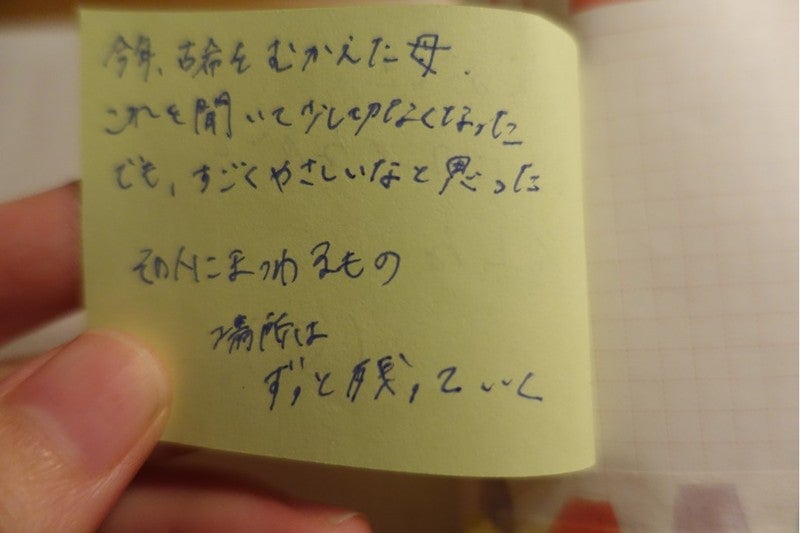 今年、古希をむかえた母、
これを聞いて少し切なくなった
でも、すごくやさしいなと思った
その人にまつわるもの
場所は
ずっと残っていく